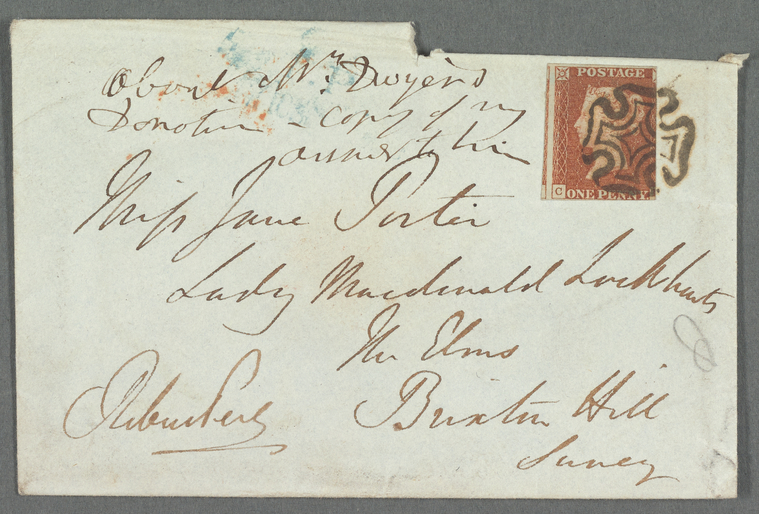 About Mr. Dwyer's
Donation - copy of my
answer to him
POSTAGE
C
ONE PENNY
Miss Jane Porter
Lady Macdonald Lockharts
The Elms
Brixton Hill
Surrey